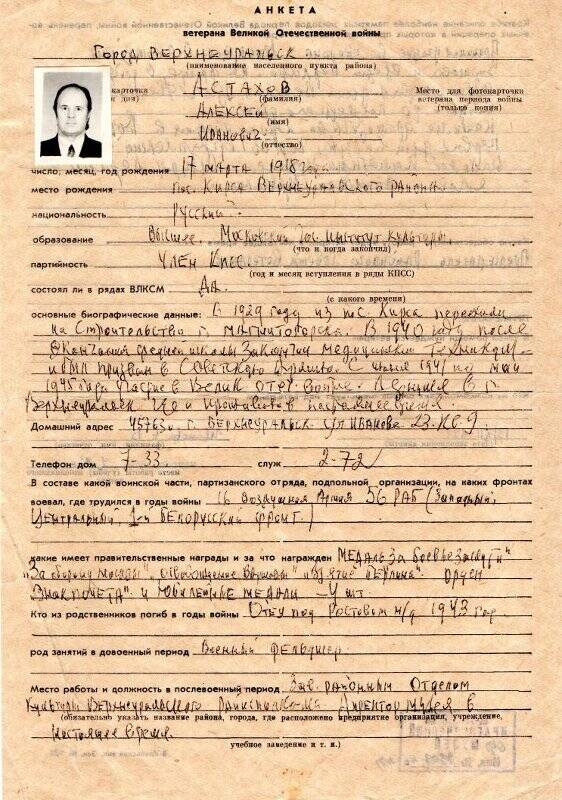 АНКЕТА
ветерана Великой Отечественной войны
Город Верхнеуральск
(наименование населенного пункта района)
Астахов
карточки
(фамилия)
Место для фотокарточки
дня)
Алексей
ветерана периода войны
(имя)
(только копия)
Иванович
(отчество)
число, месяц, год рождения 17 марта 1918 года
место рождения пос. Кирса Верхнеуральского района
национальность Русский
образование Высшее. Московский Гос. институт культуры
(что и когда закончил)
партийность Член КПСС
(год и месяц вступления в ряды КПСС)
состоял ли в рядах ВЛКСМ Да.
(с какого времени)
основные биографические данные: В 1929 году из пос. Кирса переехали
на строительство г. Магнитогорска. В 1940 году после
окончания средней школы закончил медицинский техникум
и был призван в Советскую Армию. С июня 1941 по май
1945 года участие в Велик. Отеч. войне.
Верхнеуральск где и проживает в настоящее время.
Домашний адрес 457630 г. Верхнеуральск ул Иванова 23. кв. 9
Телефон дом 7-33 служ 2-72
В составе какой воинской части, партизанского отряда, подпольной организации, на каких фронтах
воевал, где трудился в годы войны 16 Воздушная Армия 56 РАБ (Западный,
Центральный, 1-й Белорусский фронт.)
какие имеет правительственные награды и за что награжден Медаль "За боевые заслуги"
"За оборону Москвы", "Освобождение Варшавы" "Взятие Берлина". Орден
"Знак Почета" и юбилейные медали - 4 шт.
Кто из родственников погиб в годы войны Отец под Ростовом н/Д 1943 год
род занятий в довоенный период Военный фельдшер.
Место работы и должность в послевоенный период Зав. районным Отделом
Культуры Верхнеуральского Райисполкома Директор музея в
(обязательно указать название района, города, где расположено предприятие организация, учреждение,
настоящее время.
учебное заведение и т. п.)